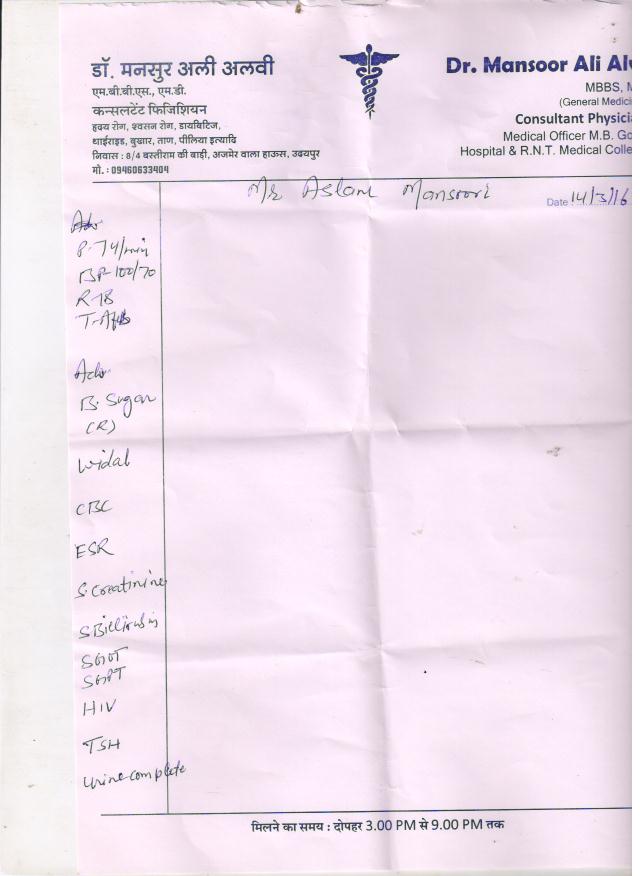 डॉ. मनसुर अली अलवी
एम.बी.बी.एस., एम.डी.
कन्सलटेंट फिजिशियन
हृदय रोग, श्वसन रोग, डायबिटिज,
थाईराइड, बुखार, ताण, पीलिया इत्यादि
निवास : 8/4 बस्तीराम की बाड़ी, अजमेर वाला हाऊस, उदयपुर
मो. : 09460633404
Dr. Mansoor Ali Al
MBBS, M
(General Medici
Consultant Physicia
Medical Officer M.B. Go
Hospital & R.N.T. Medical Colle
Mr Aslam Mansoori
Date 14/3/16
P-74/min
BP-100/70
R-18
Adv
B. Sugar
(R)
Widal
CBC
ESR
S. Creatinine
S Billirubin
SGOT
SGPT
HIV
TSH
Urine complete
मिलने का समय : दोपहर 3.00 PM से 9.00 PM तक